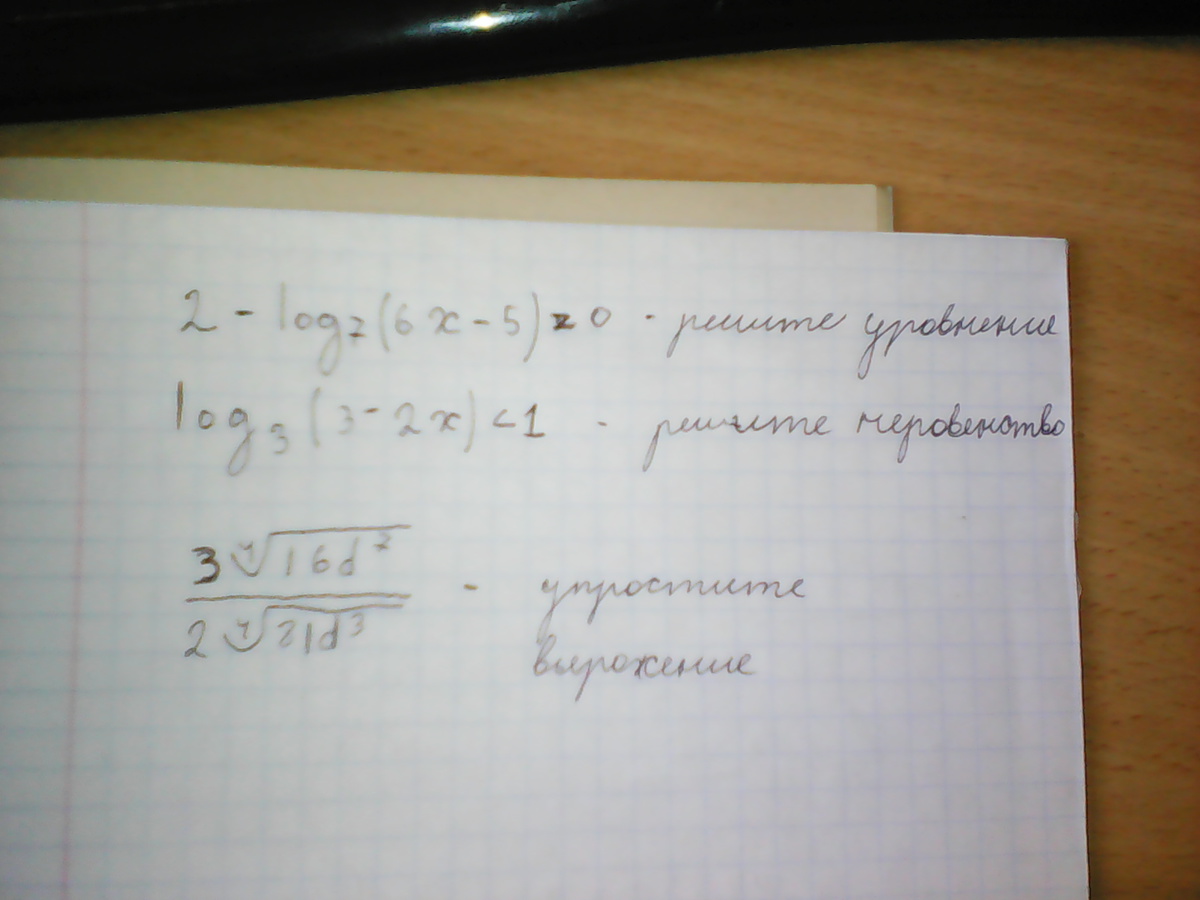 2 - log₂(6x-5)=0 - решите уровнение
log₃(3-2x)<1 - решите неровенство
3∜16d⁷ - упростите
2∜21d³
вырожение